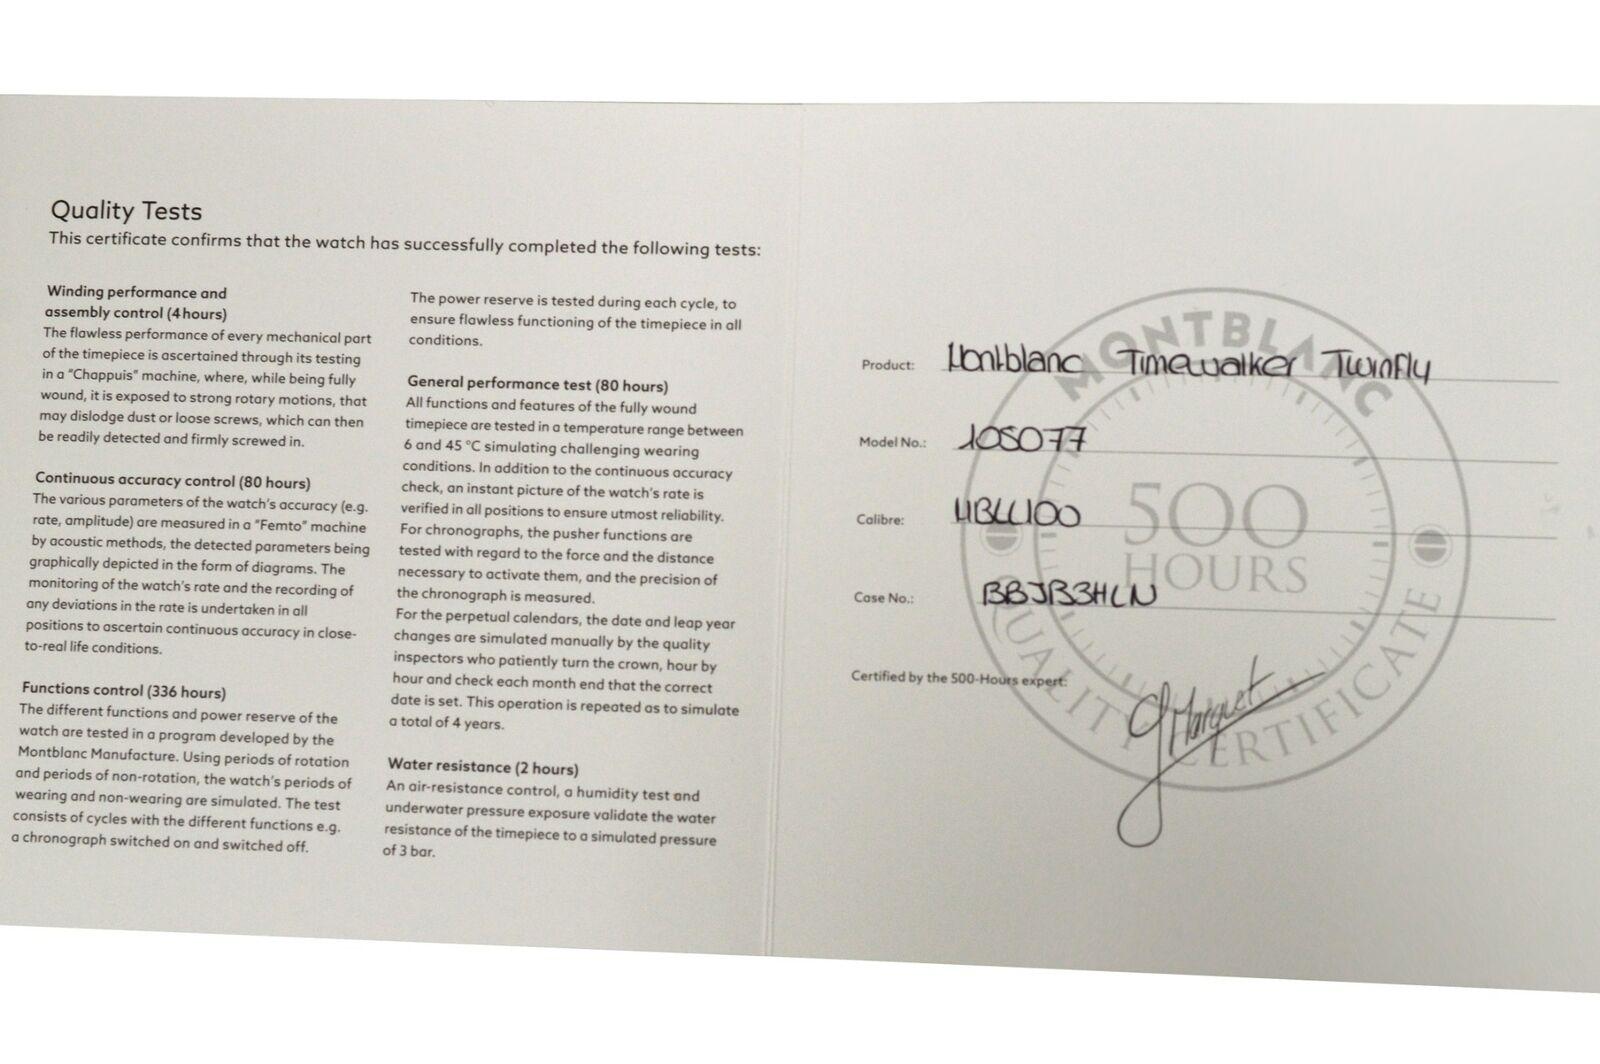 Quality Tests
This certificate confirms that the watch has successfully completed the following tests:
Winding performance and
assembly control (4 hours)
The flawless performance of every mechanical part
of the timepiece is ascertained through its testing
in a "Chappuis" machine, where, while being fully
wound, it is exposed to strong rotary motions, that
may dislodge dust or loose screws, which can then
be readily detected and firmly screwed in.
Continuous accuracy control (80 hours)
The various parameters of the watch's accuracy (e.g.
rate, amplitude) are measured in a "Femto" machine
by acoustic methods, the detected parameters being
graphically depicted in the form of diagrams. The
monitoring of the watch's rate and the recording of
any deviations in the rate is undertaken in all
positions to ascertain continuous accuracy in close-
to-real life conditions.
Functions control (336 hours)
The different functions and power reserve of the
watch are tested in a program developed by the
Montblanc Manufacture. Using periods of rotation
and periods of non-rotation, the watch's periods of
wearing and non-wearing are simulated. The test
consists of cycles with the different functions e.g.
a chronograph switched on and switched off.
The power reserve is tested during each cycle, to
ensure flawless functioning of the timepiece in all
conditions.
General performance test (80 hours)
All functions and features of the fully wound
timepiece are tested in a temperature range between
6 and 45 °C simulating challenging wearing
conditions. In addition to the continuous accuracy
check, an instant picture of the watch's rate is
verified in all positions to ensure utmost reliability.
For chronographs, the pusher functions are
tested with regard to the force and the distance
necessary to activate them, and the precision of
the chronograph is measured.
For the perpetual calendars, the date and leap year
changes are simulated manually by the quality
inspectors who patiently turn the crown, hour by
hour and check each month end that the correct
date is set. This operation is repeated as to simulate
a total of 4 years.
Water resistance (2 hours)
An air-resistance control, a humidity test and
underwater pressure exposure validate the water
resistance of the timepiece to a simulated pressure
of 3 bar.
MONTBLANC
Product: Montblanc Timewalker TwinFly
Model No.: 105077
500
Calibre: MBLL100
HOURS
Case No.: BBJB3HLN
Certified by the 500-Hours expert:
Marquet
QUALITY CERTIFICATE